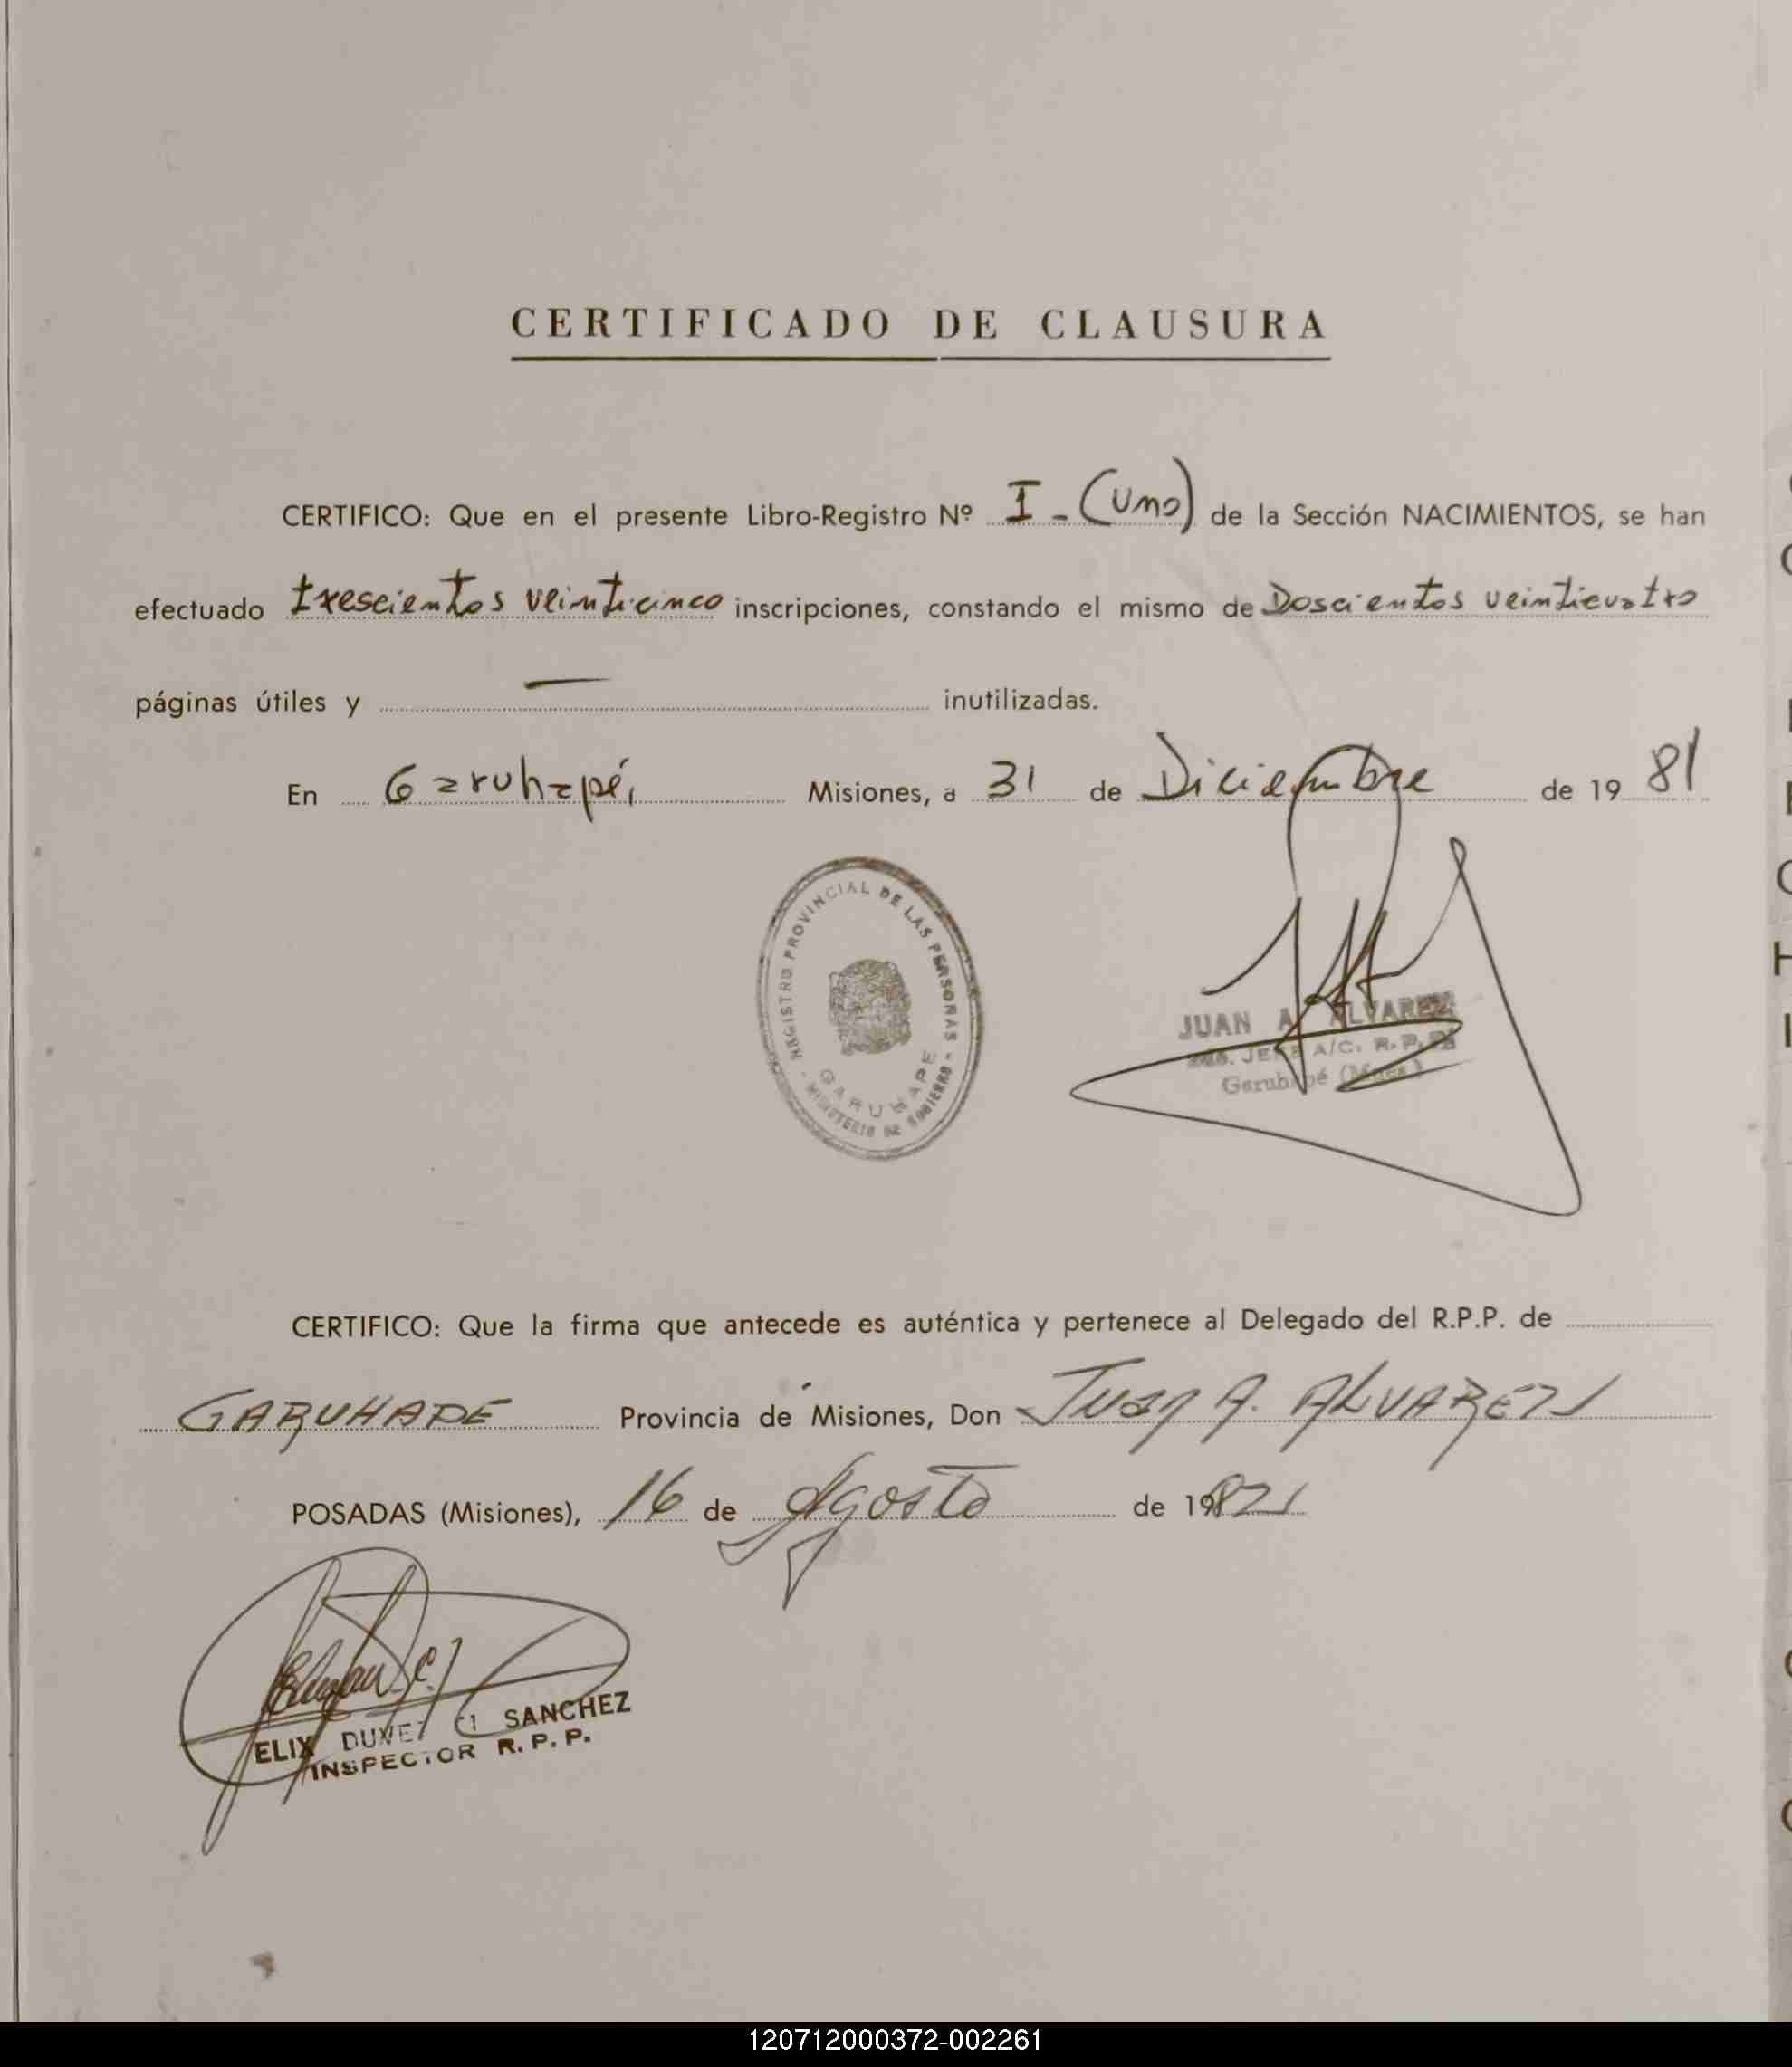 CERTIFICADO DE CLAUSURA
CERTIFICO: Que en el presente Libro-Registro Nº I - (Uno) de la Sección NACIMIENTOS, se han
efectuado trescientos veinticinco inscripciones, constando el mismo de Doscientos veinticuatro
páginas útiles y — inutilizadas.
En Garuhapé, Misiones, a 31 de Diciembre de 1981
REGISTRO PROVINCIAL DE LAS PERSONAS - MINISTERIO DE GOBIERNO -
GARUHAPE
JUAN A. ALVAREZ
JEFE A/C. R.P.P.
Garuhapé (Mnes.)
CERTIFICO: Que la firma que antecede es auténtica y pertenece al Delegado del R.P.P. de
GARUHAPE Provincia de Misiones, Don Juan A. ALVAREZ
POSADAS (Misiones), 16 de Agosto de 1982
ELIX SANCHEZ
INSPECTOR R.P.P.
120712000372-002261